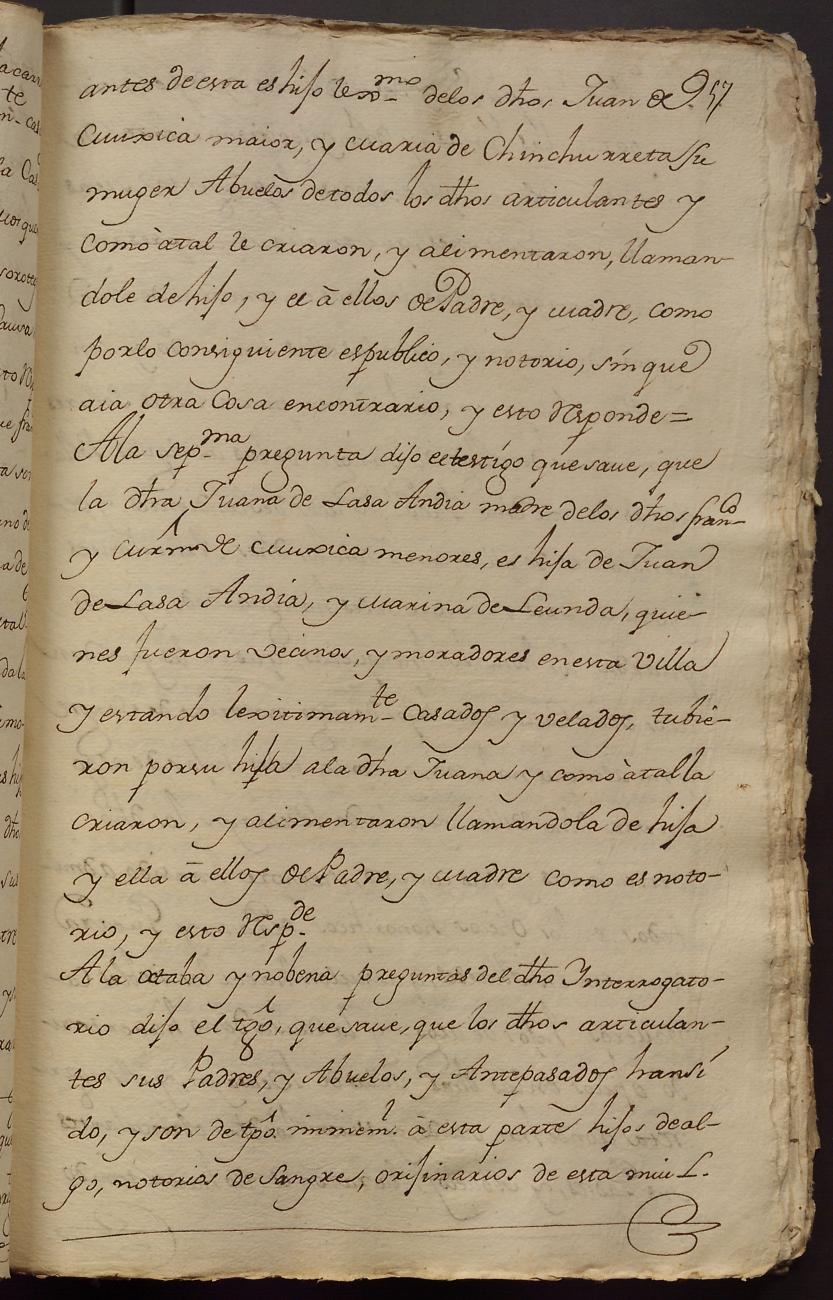 antes de esta es hijo lexmo de los dhos Juan de 957
Muxica maior, y Maria de Chinchurreta su
muger Abuelos de todos los dhos articulantes y
como à tal le criaron, y alimentaron, llaman-
dole de hijo, y el â ellos de Padre, y Madre, como
por lo consiguiente es publico, y notorio, sin que
aia otra Cosa encontrario, y esto Responde =
A la sepma pregunta dijo eltestigo que save, que
la dha Juana de Lasa Andia madre de los dhos Franco
y Mrn de Muxica menores, es hija de Juan
de Lasa Andia, y Marina de Leunda, quie-
nes fueron vecinos, y moradores en esta Villa
y estando lexitimamte Casados y velados, tubie-
ron por su hija ala dha Juana y como à tal la
criaron, y alimentaron llamandola de hija
y ella â ellos de Padre, y Madre como es noto-
rio, y esto Respde
A la octaba y nobena preguntas del dho Ynterrogato-
rio dijo el tgo, que save, que los dhos articulan-
tes sus Padres, y Abuelos, y Antepasados han si
do, y son de tpo inmeml. à esta parte hijos de al-
go, notorios de Sangre, orijinarios de esta mui L.